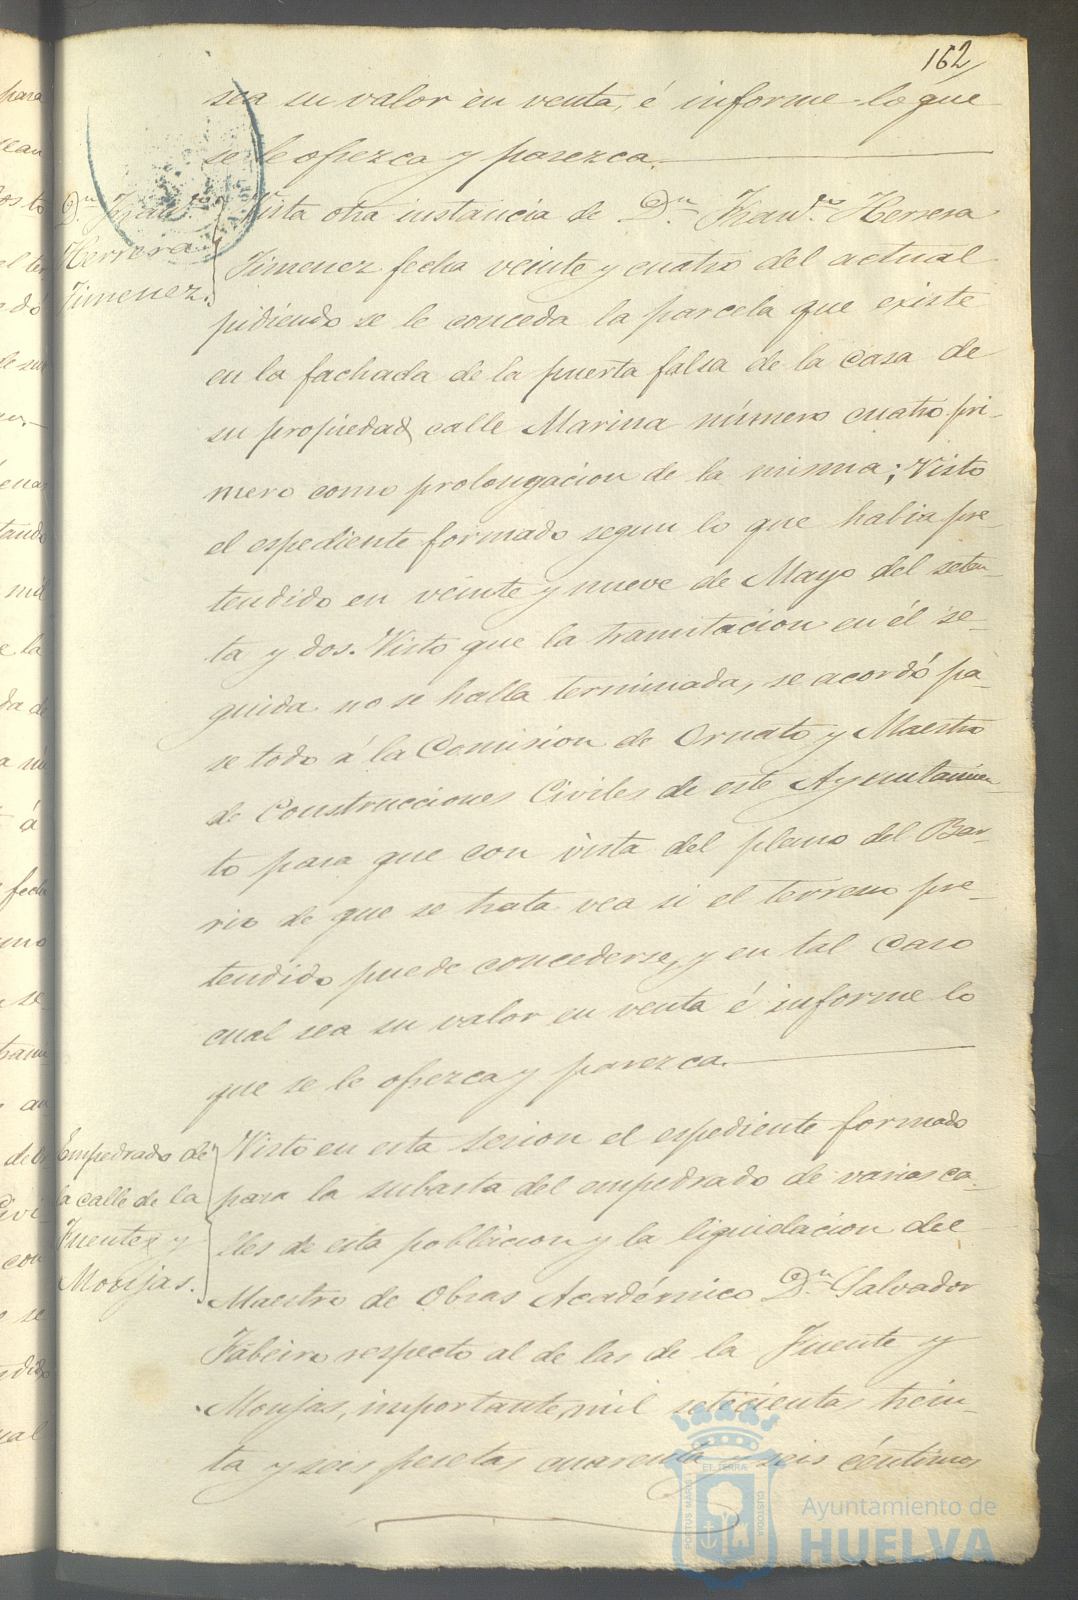 162
sea su valor en venta, é informe lo que
se le ofrezca y parezca.
Dn. Fran.co
Herrera
Jimenez.
Vista otra instancia de Dn. Fran.co Herrera
Jimenez fecha veinte y cuatro del actual
pidiendo se le conceda la parcela que existe
en la fachada de la puerta falsa de la casa de
su propiedad calle Marina número cuatro pri-
mero como prolongacion de la misma; Visto
el espediente formado segun lo que habia pre-
tendido en veinte y nueve de Mayo del seten-
ta y dos. Visto que la tramitacion en él se-
guida no se halla terminada, se acordó pa-
se todo á la Comision de Ornato y Maestro
de Construcciones Civiles de este Ayuntamien-
to para que con vista del plano del Bar-
rio de que se trata vea si el terreno pre-
tendido puede concederse, y en tal caso
cual sea su valor en venta é informe lo
que se le ofrezca y parezca.
Empedrado de
la calle de la
Fuente y
Monjas.
Visto en esta sesion el espediente formado
para la subasta del empedrado de varias ca-
lles de esta poblacion y la liquidacion del
Maestro de Obras Académico Dn. Salvador
Fabeiro respecto al de las de la Fuente y
Monjas, importante, mil setecientas trein-
ta y seis pesetas cuarenta y seis céntimos
PORTUS MARIS ET TERRÆ CUSTODIA
Ayuntamiento de
HUELVA